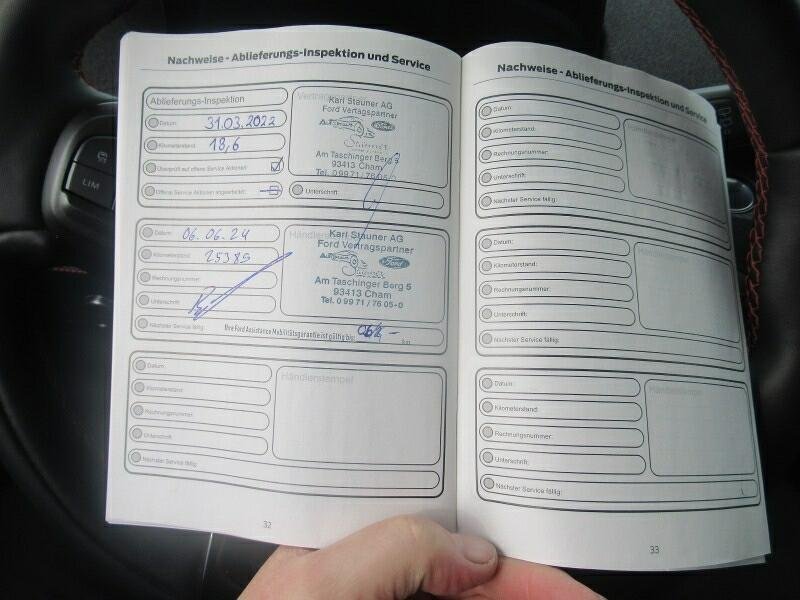 Nachweise - Ablieferungs-Inspektion und Service
Ablieferungs-Inspektion
Datum: 31.03.2022
Kilometerstand: 18,6
Überprüft auf offene Service Aktionen:
Offene Service Aktionen abgearbeitet:
Karl Stauner AG
Ford Vertragspartner
Ford
Stauner
Am Taschinger Berg 5
93413 Cham
Tel. 0 99 71 / 76 05-0
Unterschrift:
Datum: 06.06.24
Kilometerstand: 25389
Rechnungsnummer:
Unterschrift:
Karl Stauner AG
Ford Vertragspartner
Ford
Stauner
Am Taschinger Berg 5
93413 Cham
Tel. 0 99 71 / 76 05-0
Nächster Service fällig: Ihre Ford Assistance Mobilitätsgarantie ist gültig bis: km
Datum:
Kilometerstand:
Rechnungsnummer:
Unterschrift:
Händlerstempel
Nächster Service fällig:
32
Nachweise - Ablieferungs-Inspektion und Service
Datum:
Kilometerstand:
Rechnungsnummer:
Unterschrift:
Händlerstempel
Nächster Service fällig:
Datum:
Kilometerstand:
Rechnungsnummer:
Unterschrift:
Händlerstempel
Nächster Service fällig:
Datum:
Kilometerstand:
Rechnungsnummer:
Unterschrift:
Händlerstempel
Nächster Service fällig:
33
LIM